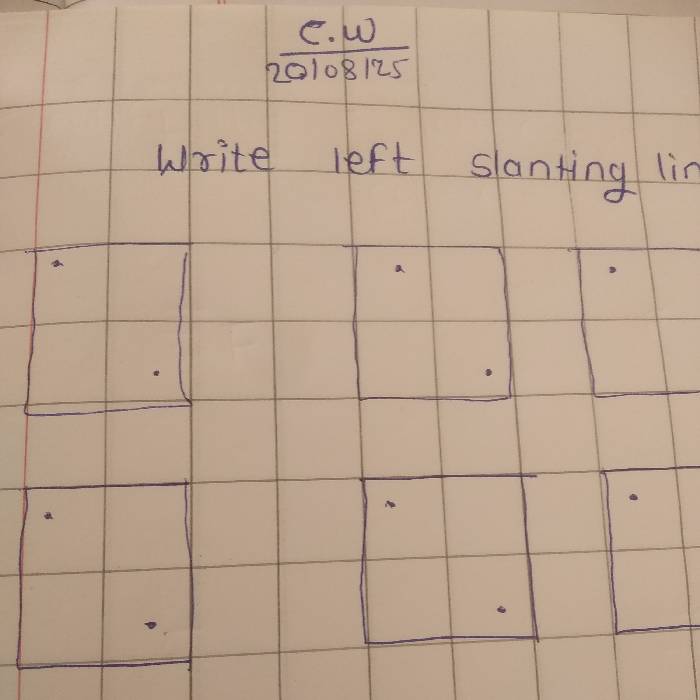 C.W
20/08/25
Write left slanting lin